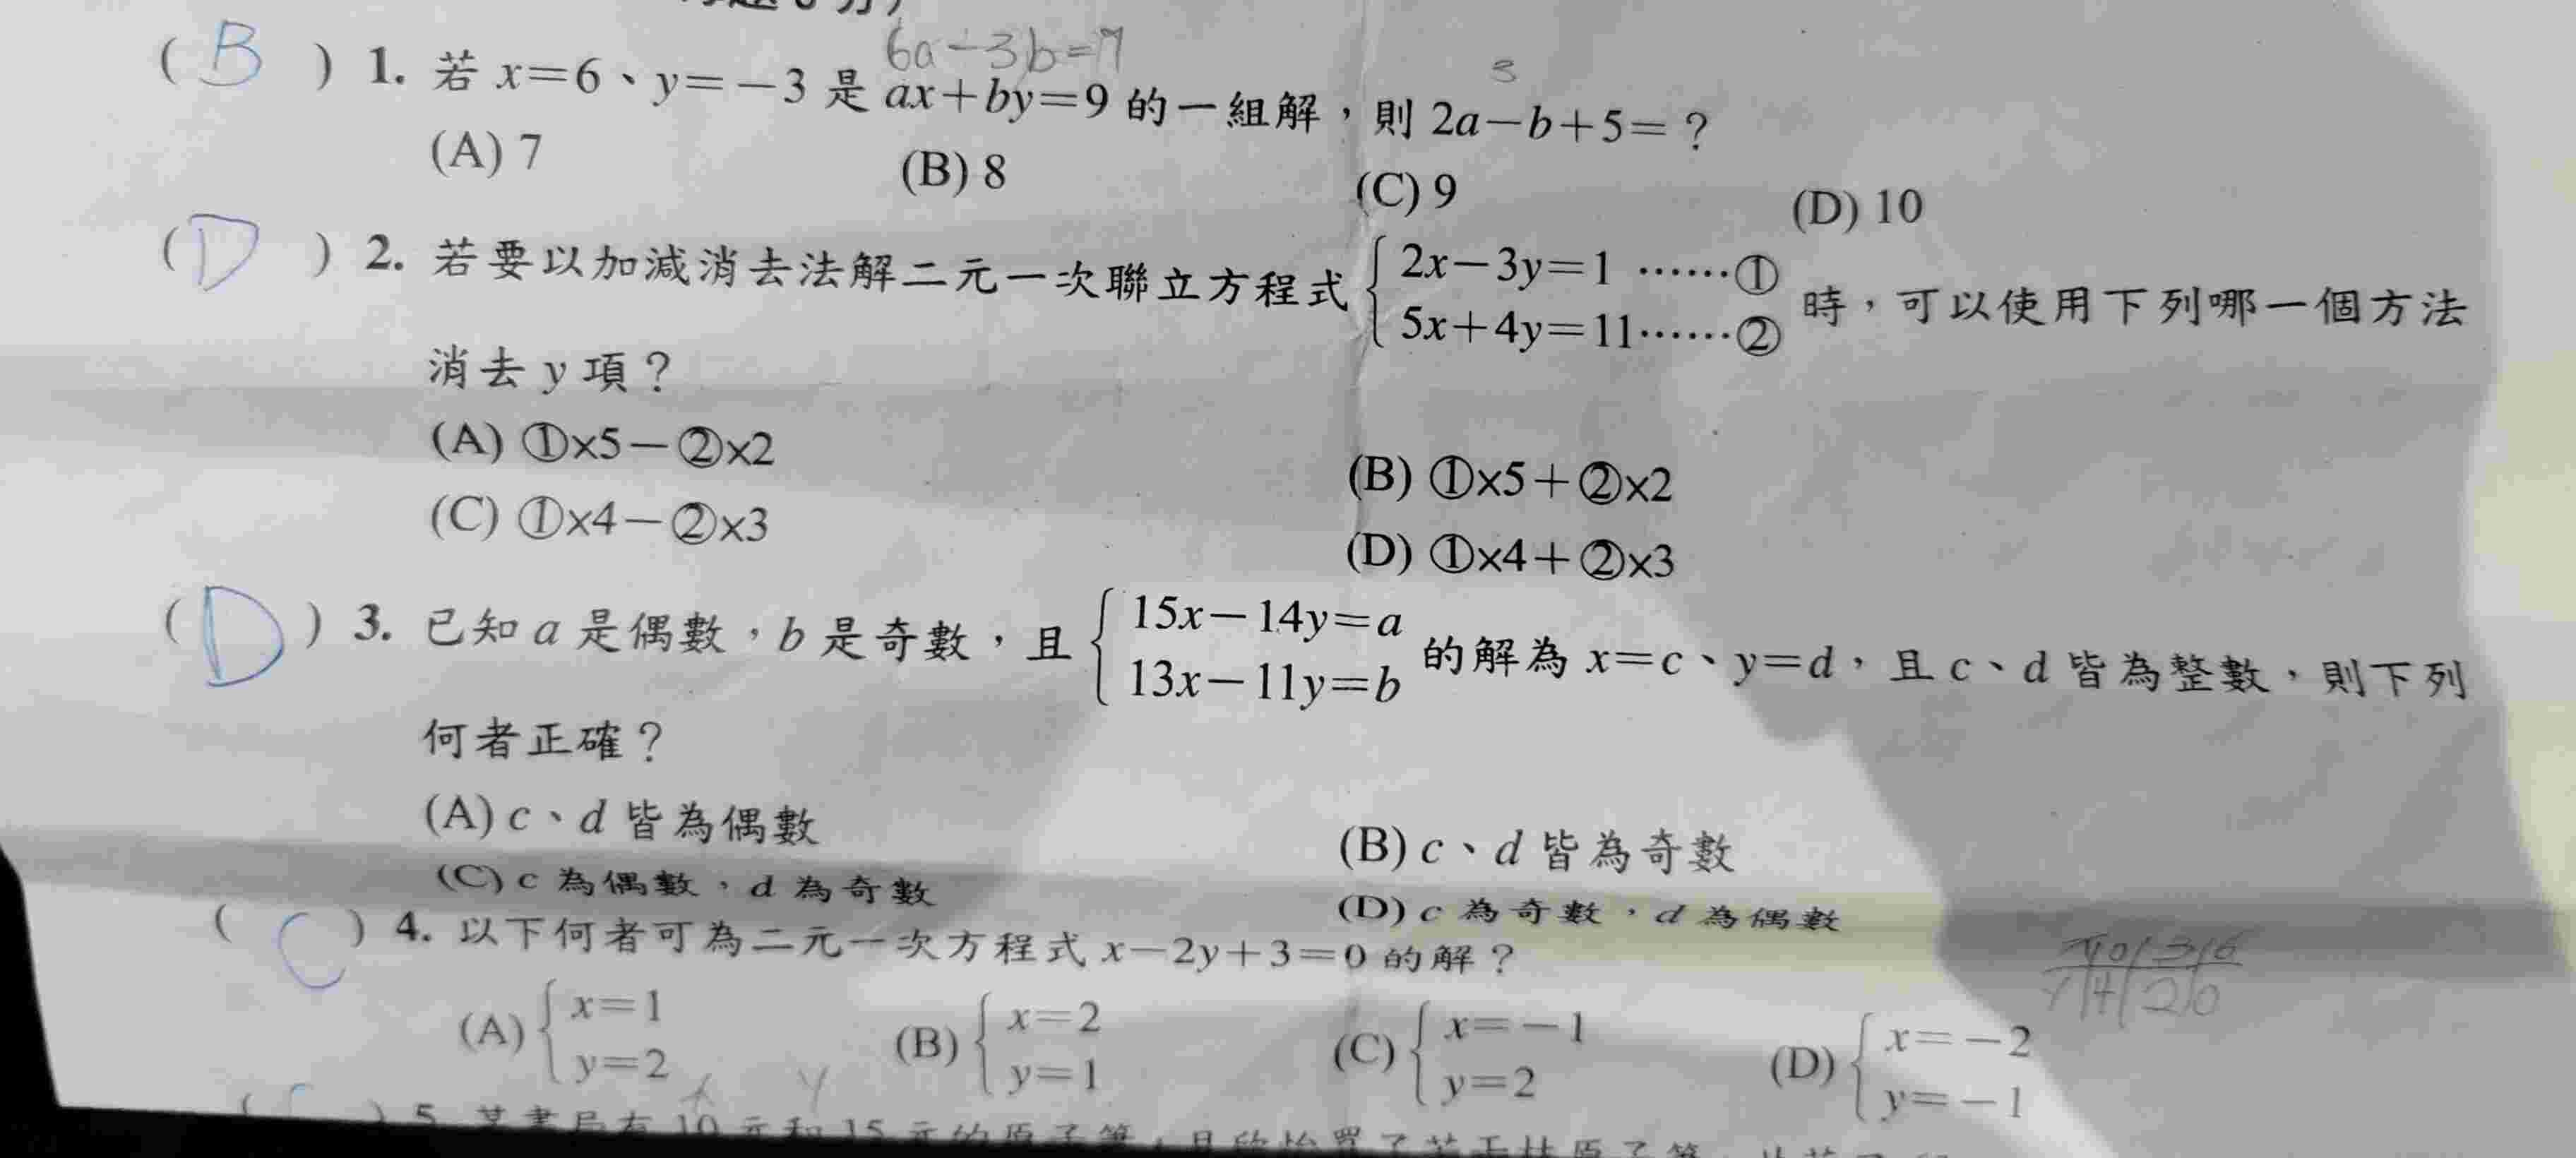 6a-3b=9
(B) 1. 若 x=6、y=-3 是 ax+by=9 的一組解，則 2a-b+5=？
3
(A) 7 (B) 8 (C) 9 (D) 10
(D) 2. 若要以加減消去法解二元一次聯立方程式 { 2x-3y=1 ……① 5x+4y=11……② 時，可以使用下列哪一個方法
消去 y 項？
(A) ①×5-②×2 (B) ①×5+②×2
(C) ①×4-②×3 (D) ①×4+②×3
(D) 3. 已知 a 是偶數，b 是奇數，且 { 15x-14y=a 13x-11y=b 的解為 x=c、y=d，且 c、d 皆為整數，則下列
何者正確？
(A) c、d 皆為偶數 (B) c、d 皆為奇數
(C) c 為偶數，d 為奇數 (D) c 為奇數，d 為偶數
(C) 4. 以下何者可為二元一次方程式 x-2y+3=0 的解？
(A) { x=1 y=2 (B) { x=2 y=1 (C) { x=-1 y=2 (D) { x=-2 y=-1
x y
5. 某書局有 10 元和 15 元的原子筆